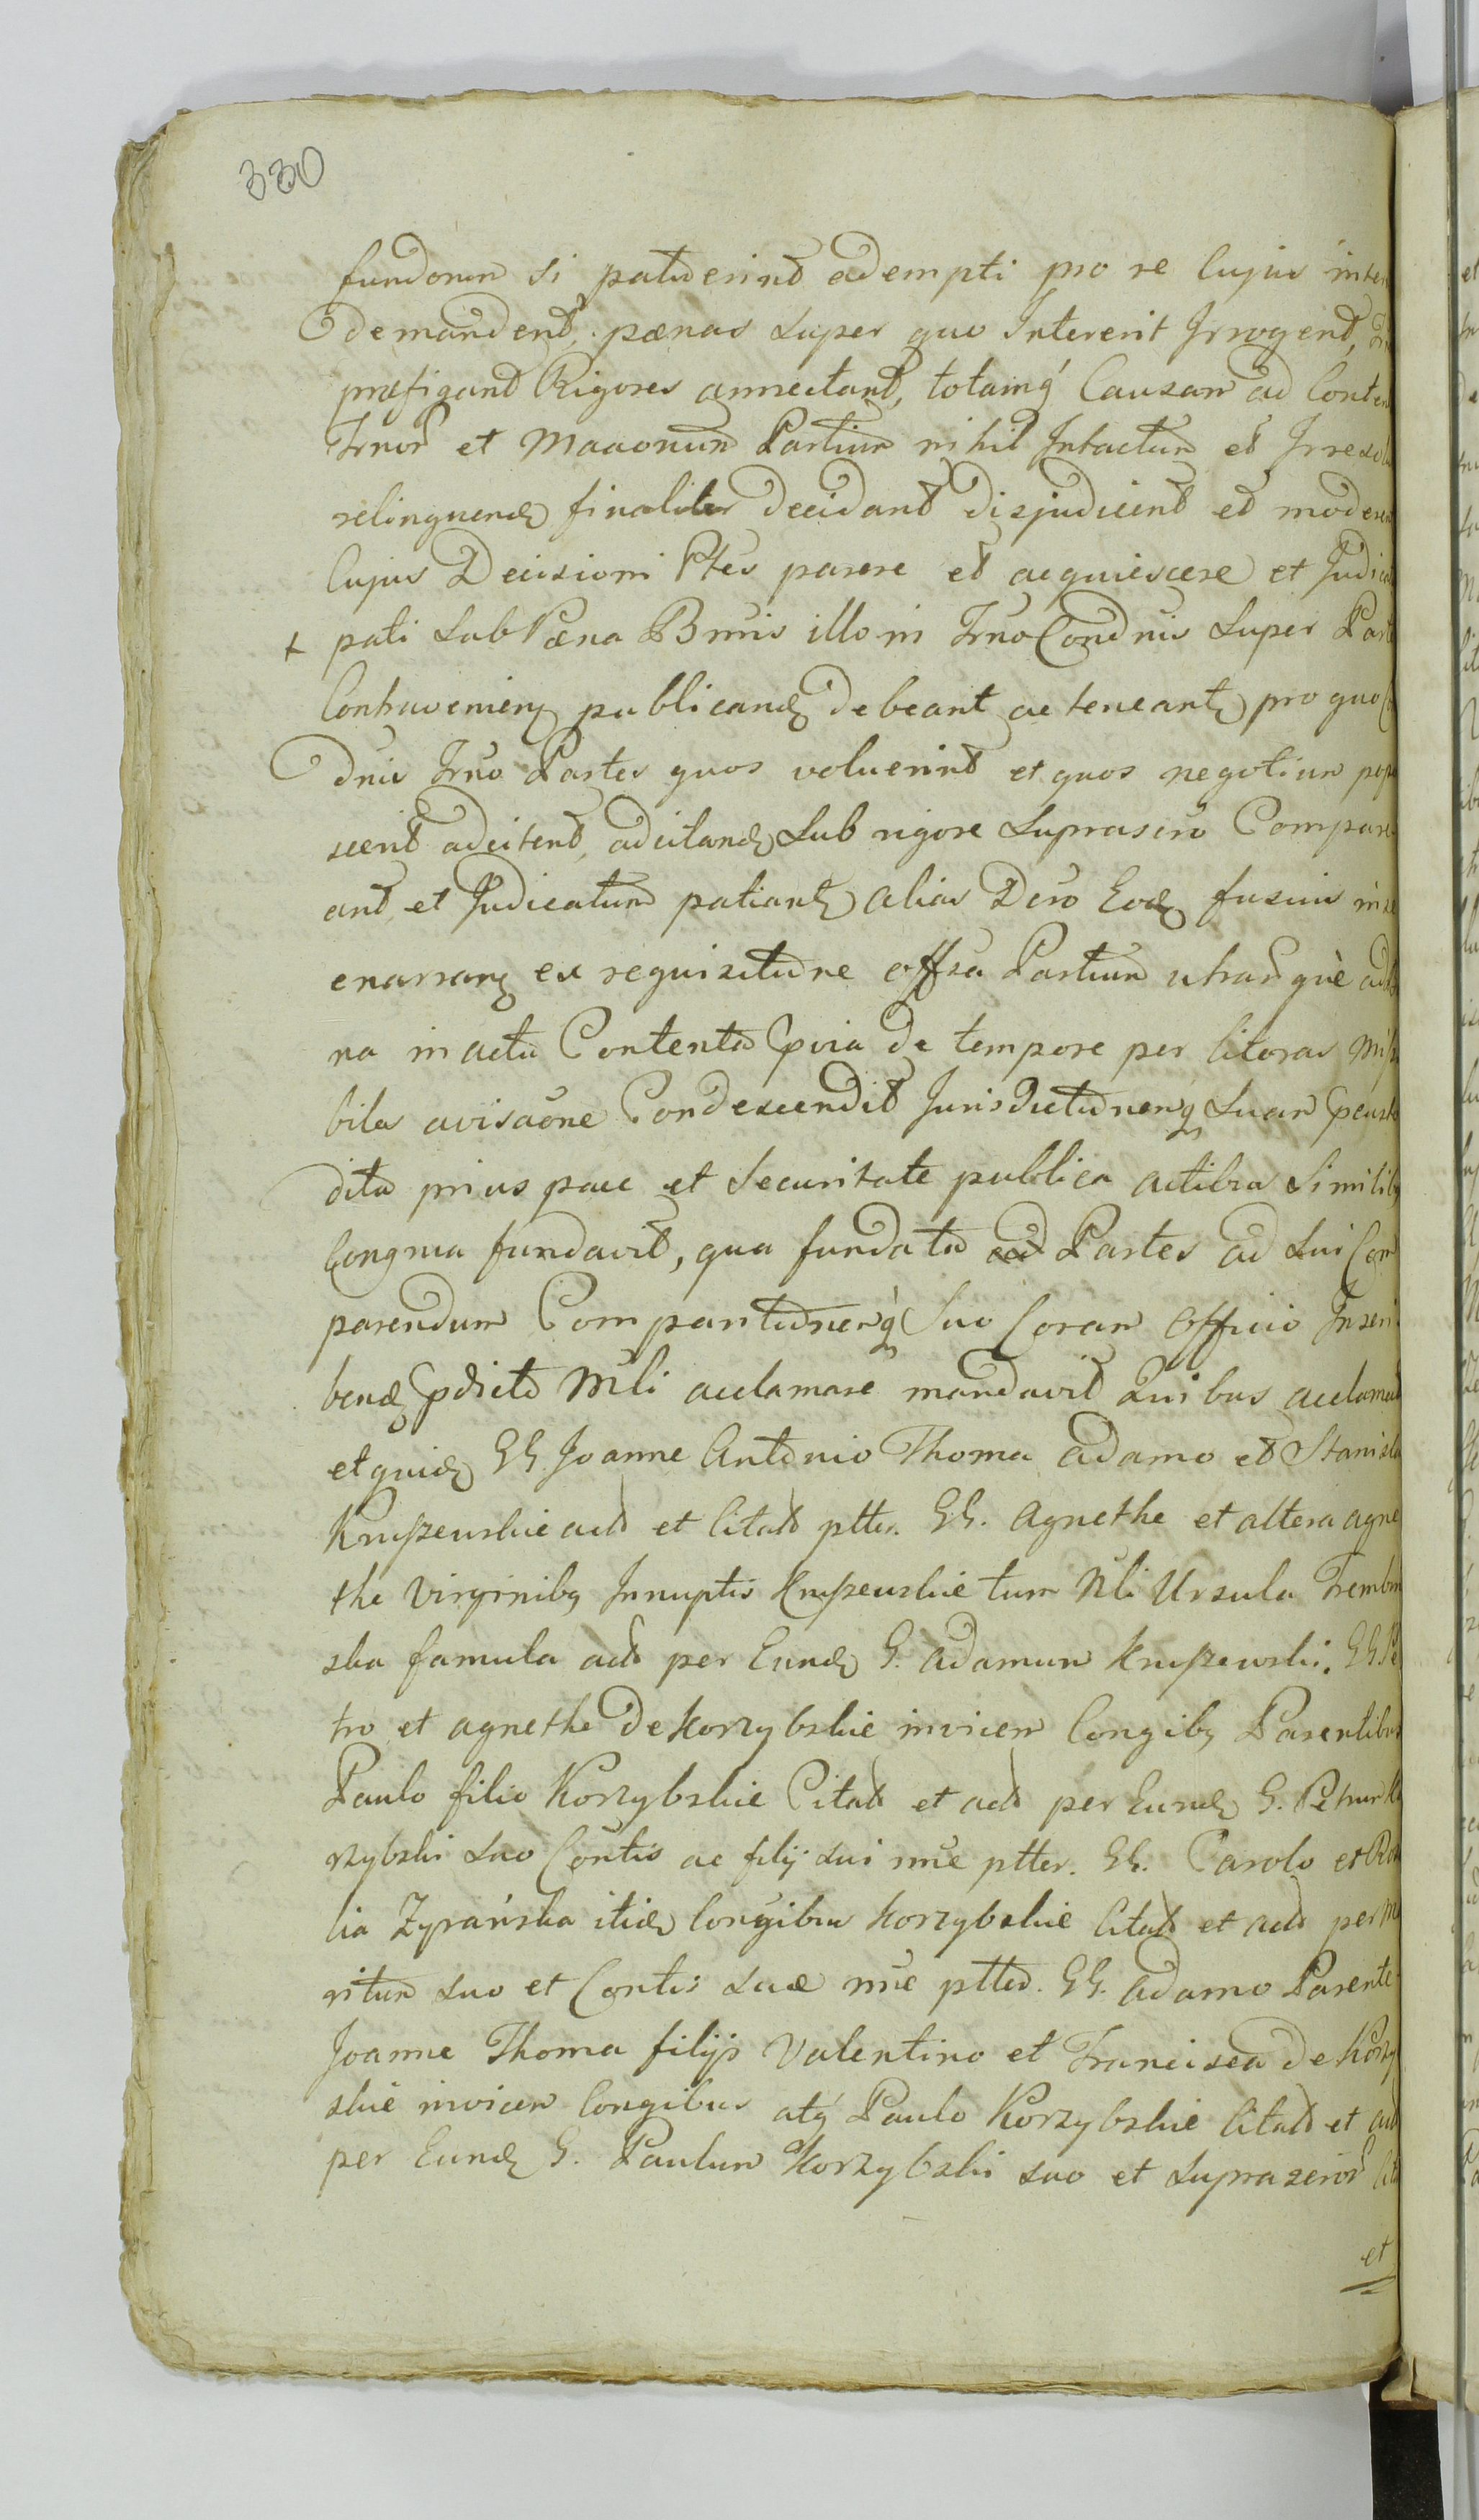 330
fundorum si patuerint adempti pro re cujus inter
demandent, pænas super quo Intererit Irrogent,
præfigant Rigores annectant, totamq́ Causam ad Conten
Trnor̃ et Maaonum Partium nihil Intactum et Irresolu
relinquend finaliter Decidant Disjudicent et moderent
Cujus Decisioni Ptes parere et acquiescere et Judica
+ pati sub Pæna Bnnis illo in Trno Condnis super Parte
Contraveniens publicand debeant ac teneant pro quo
dnis Trno Partes quos voluerint et quos negotium popo
scerit adcitent, adcitand Sub rigore suprascro Compare
ant et Judicatum patiant alias Dcro Eod fusius in se
enarrans ex requisitione offsa Partium utrar̃que
na in actu Contenta Cpvia de tempore per literas
biles avisaone Condescendit Jurisdictionemq Suam
dita prius pace et Securitate publica actibus similibq
Congrua fundavit, qua fundata Partes ad sui Com
parendum Comparitionemq́ Suo Coram Officio Inscri
bend pdicto Mli acclamare mandavit Quibus acclamat
et quid GG. Joanne Antonio Thoma Adamo et Stanisla
Kruszewskie actt et Citatt ptter. GG. Agnethe et altera Agne
the Virginibq Innuptis Kruszewskie tum Nli Ursula
ska famula actt per Eund G. Adamum Kruszewski. GG. Pe
tro et Agnethe de Korzybskie invicem Congibq Parentibus
Paulo filio Korzybskie Citatt et actt per Eund G. Petrum Ko
rzybski suo Contis ac filij sui nne ptter. GG. Carolo et
lia Zyrańska itid Congibus Korzybskie Citatt et actt per ma
ritum suo et Contis suæ nne ptter. GG. Adamo Parente
Joanne Thoma filijs Valentino et Francisca de Korzy
skie invicem Congibus atq́ Paulo Korzybskie Citatt et actt
per Eund G. Paulum Korzybski suo et suprascror̃
et